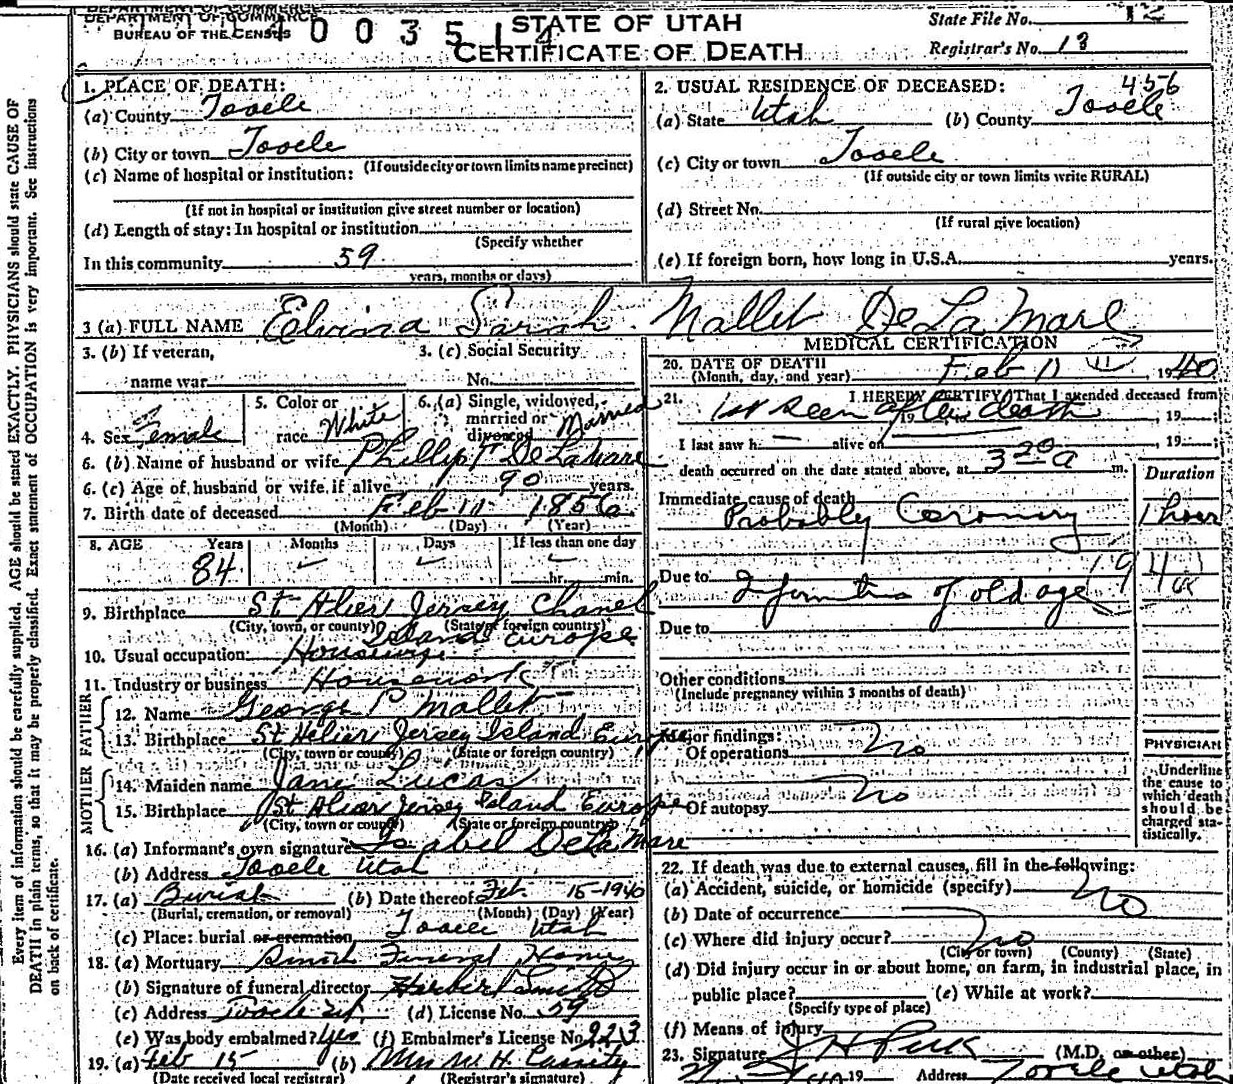 DEPARTMENT OF COMMERCE
BUREAU OF THE CENSUS
4 0 0 3 5 1 4
STATE OF UTAH
CERTIFICATE OF DEATH
State File No. 12
Registrar's No. 13
1. PLACE OF DEATH:
(a) County Tooele
(b) City or town Tooele
(If outside city or town limits name precinct)
(c) Name of hospital or institution:
(If not in hospital or institution give street number or location)
(d) Length of stay: In hospital or institution
(Specify whether
In this community 59
years, months or days)
2. USUAL RESIDENCE OF DECEASED: 456
(a) State Utah (b) County Tooele
(c) City or town Tooele
(If outside city or town limits write RURAL)
(d) Street No.
(If rural give location)
(e) If foreign born, how long in U.S.A. years.
3 (a) FULL NAME Elvina Sarah Mallet De La Mare
3. (b) If veteran,
name war
3. (c) Social Security
No.
4. Sex Female
5. Color or
race White
6. (a) Single, widowed,
married or
divorced Married
6. (b) Name of husband or wife Phillip F De LaMare
6. (c) Age of husband or wife if alive 90 years.
7. Birth date of deceased Feb 11 1856
(Month) (Day) (Year)
8. AGE Years Months Days If less than one day
84 hr. min.
9. Birthplace St Alier Jersey Chanel
(City, town, or county) (State or foreign country)
Island Europe
10. Usual occupation: Housewife
11. Industry or business Housework
FATHER
12. Name George P Mallet
13. Birthplace St Helier Jersey Island Europe
(City, town or county) (State or foreign country)
MOTHER
14. Maiden name Jane Lucas
15. Birthplace St Alier Jersey Island Europe
(City, town or county) (State or foreign country)
16. (a) Informant's own signature Isabel De La Mare
(b) Address Tooele Utah
17. (a) Burial (b) Date thereof Feb. 15-1940
(Burial, cremation, or removal) (Month) (Day) (Year)
(c) Place: burial or cremation Tooele Utah
18. (a) Mortuary Smith Funeral Home
(b) Signature of funeral director Herbert Smith
(c) Address Tooele Ut (d) License No. 59
(e) Was body embalmed? Yes (f) Embalmer's License No. 223
19. (a) Feb 15 (b) Mrs W. H. Cassity
(Date received local registrar) (Registrar's signature)
MEDICAL CERTIFICATION
20. DATE OF DEATH
(Month, day, and year) Feb 11 11, 1940
21. I HEREBY CERTIFY, That I attended deceased from
1st seen after death 19
I last saw h alive on , 19 ;
death occurred on the date stated above, at 3 20 a m.
Duration
Immediate cause of death
Probably Coronary 1 hour
Due to Infirmities of old age
Due to
Other conditions
(Include pregnancy within 3 months of death)
Major findings:
Of operations no
Of autopsy no
PHYSICIAN
Underline
the cause to
which death
should be
charged sta-
tistically.
22. If death was due to external causes, fill in the following:
(a) Accident, suicide, or homicide (specify) no
(b) Date of occurrence
(c) Where did injury occur? no
(City or town) (County) (State)
(d) Did injury occur in or about home, on farm, in industrial place, in
public place? (e) While at work?
(Specify type of place)
(f) Means of injury
23. Signature J H Peck (M.D. or other)
19 Address Tooele Utah
Every item of information should be carefully supplied. AGE should be stated EXACTLY. PHYSICIANS should state CAUSE OF
DEATH in plain terms, so that it may be properly classified. Exact statement of OCCUPATION is very important. See instructions
on back of certificate.